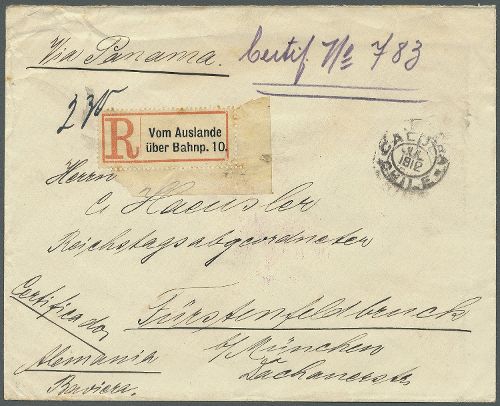 Via Panama.
Certif. No 783
235
R
Vom Auslande
über Bahnp. 10.
CALDERA
1912
CHILE
Herrn
C. Haeusler
Reichstagsabgeordneter
Certificado
Fürstenfeldbruck
b/München
Alemania
Dachauerstr
Baviera.